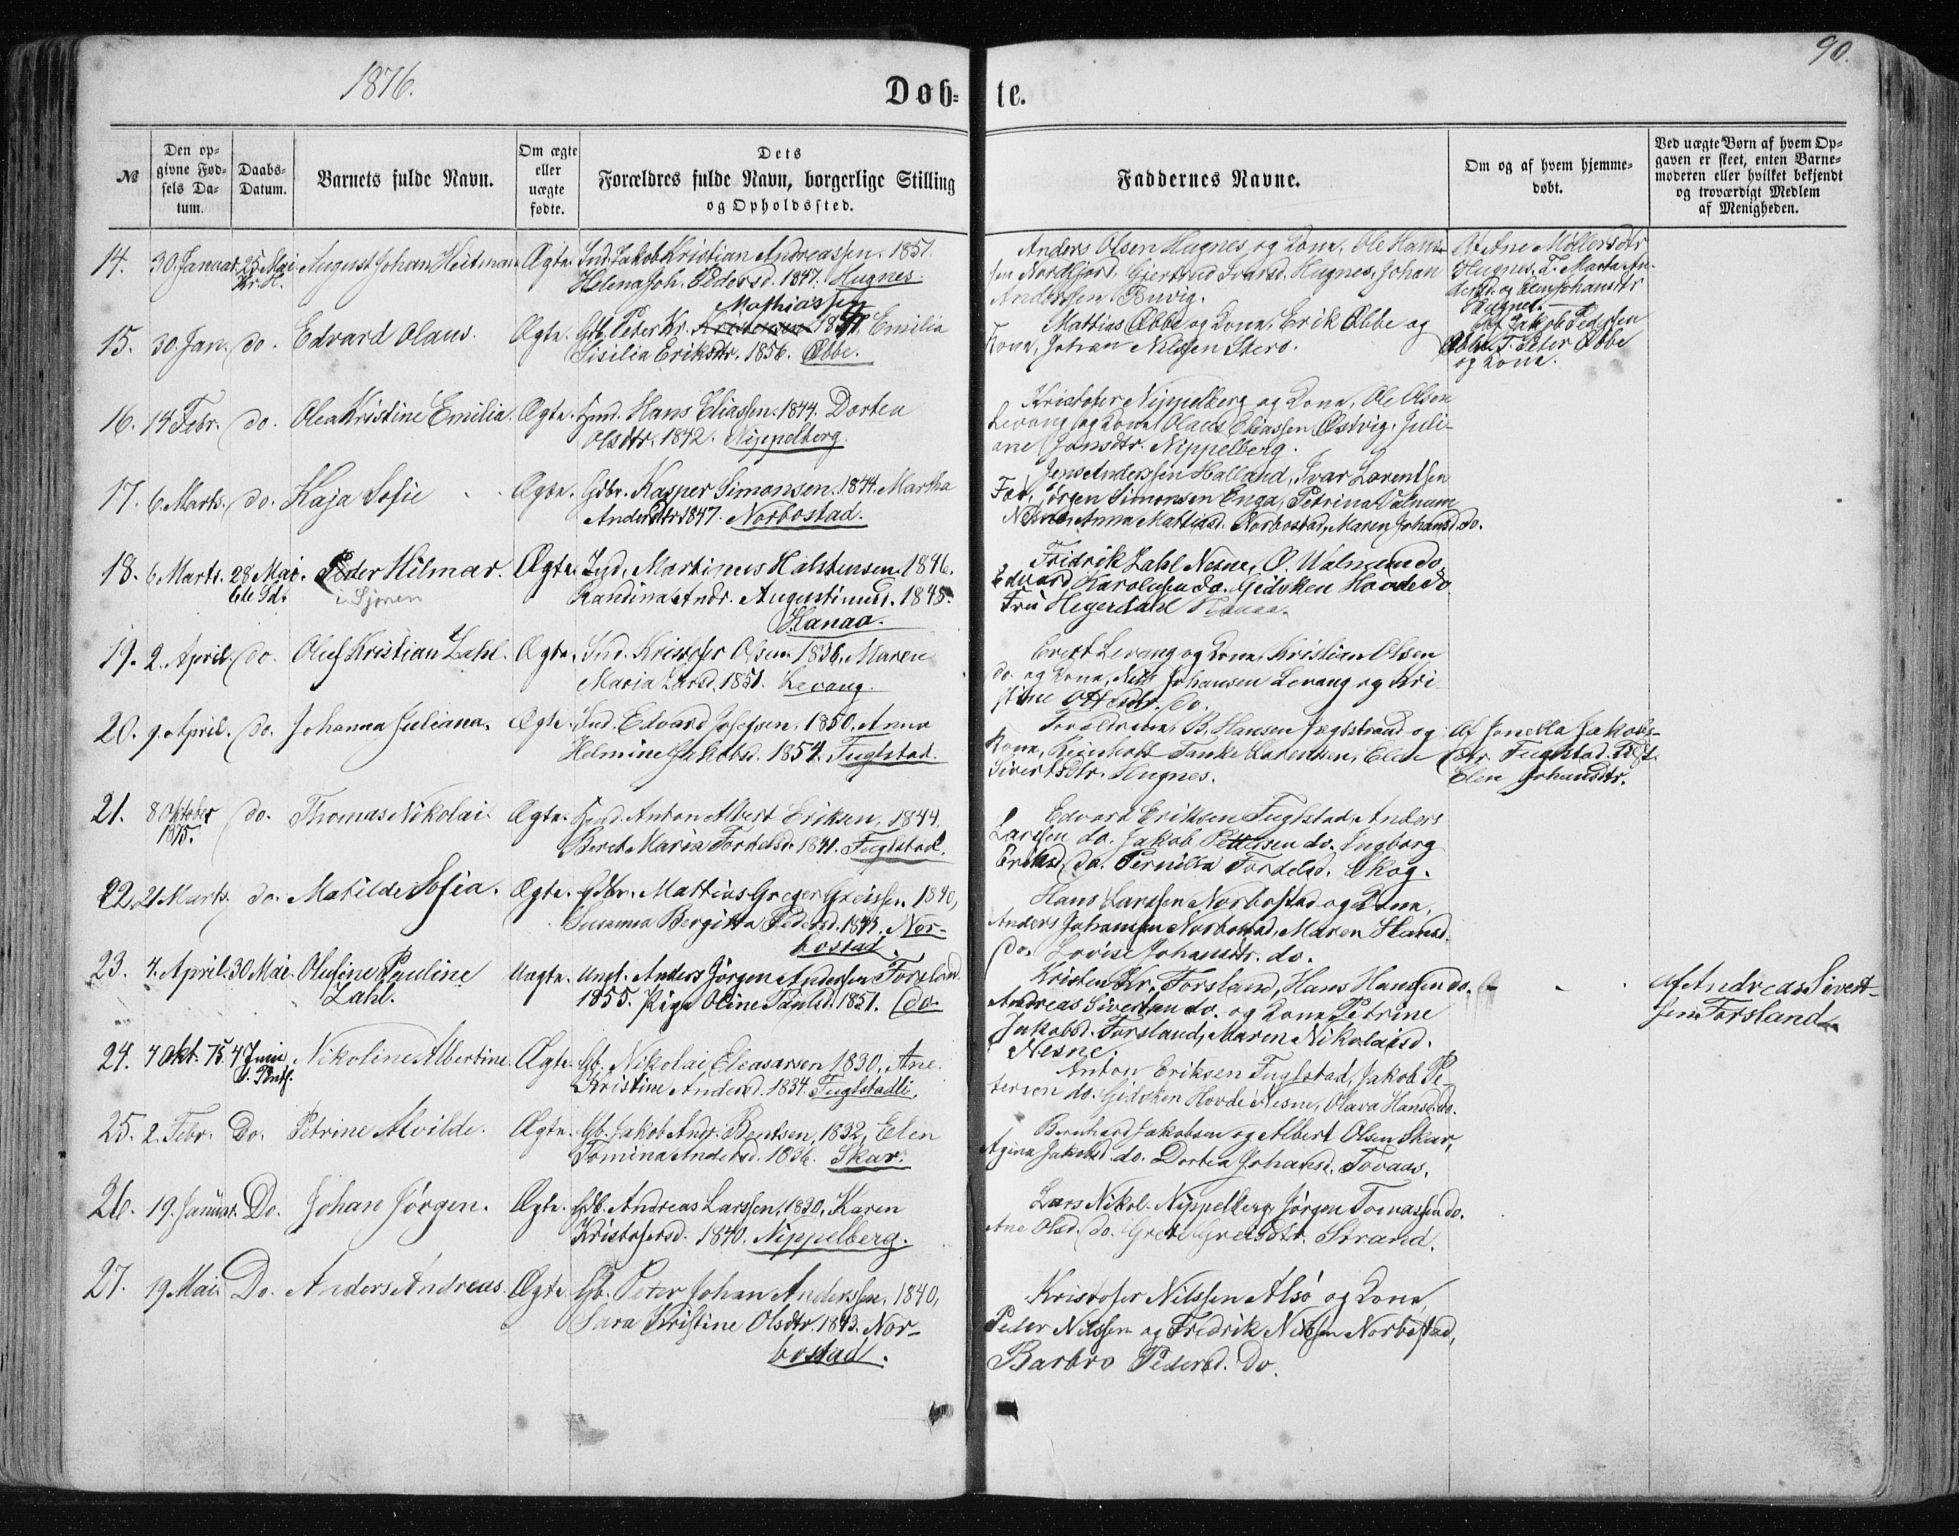 1876.
Døb-
te.
90.
№
Den op-
givne Fød-
sels Da-
tum.
Daabs-
Datum.
Barnets fulde Navn.
Om ægte
eller
uægte
fødte.
Dets
Forældres fulde Navn, borgerlige Stilling
og Opholdssted.
Faddernes Navne.
Om og af hvem hjemme-
døbt.
Ved uægte Børn af hvem Op-
gaven er skeet, enten Barne-
moderen eller hvilket bekjendt
og troværdigt Medlem
af Menigheden.
14. 30 Januar. 25 Mai August Johan Heitman Ægte. Ind. Jakob Kristian Andreassen. 1851.
Kr. H.
Helena Joh. Pedersd. 1847. Hugnes.
Anders Olsen Hugnes og Kona, Ole Han-
sen Nordfjord, Gjertrud Ivarsd. Hugnes, Johan
Anderssen Buvig.
Af Ane Møllersdtr
Hugnes. T. Marta An-
dersd. og Elen Johansdtr
Hugnes.
15. 30. Jan. do. Edvard Olaus. Ægte. Gb. Peter Kr. Mathiassen 1851. Emilia
Sisilia Eriksdtr. 1856. Æbbe.
Mattias Æbbe og Kona, Erik Æbbe og
Kona, Johan Nilssen
Af Jakob Pedersen
Æbbe. T. Peter Æbbe
og Kona.
16. 14 Febr. do. Olea Kristine Emilia. Ægte. Ind. Hans Eliassen. 1844. Dortea
Olsdtr. 1842. Nippelberg.
Kristofer Nippelberg og Kona, Ole Olsen
Levang og Kona, Olaus Eliassen Østvig, Juli-
ane Jonsdtr. Nippelberg.
17. 6 Marts. do. Kaja Sofie Ægte. Gdbr. Kasper Simonsen. 1844. Martha
Andersdtr 1847. Norbostad.
Jens Anderssen Halland, Ivar Lorentsen
Far, Jørgen Simonsen Enga, Petrina Valnum
Nesne, Anna Mattiasd. Norbostad, Maren Johansd. do.
18. 6 Marts. 28 Mai. Peder Hilmar. Ægte. Ind. Martinus Halstensen. 1846.
i Sjonen
Randina Andr. Augustinusd. 1845.
Hanaa.
Fridrik Zahl Nesne, O. Walnum do,
Edvard Karolussen do. Gidsken Hovde do
Fru Hegerdahl Hanaa.
19. 2. April. do. Oluf Kristian Zahl. Ægte. Ind. Kristofer Olsen. 1836, Maren
Maria Larsd. 1851. Levang.
Evert Levang og Kona, Kristian Olsen
do. og Kona, Nils Johansen Levang og Kri-
stine Ottesdtr. do.
20. 9. April. do. Johanna Juliana. Ægte. Ind. Edvard Josefsen. 1850. Anna
Helmine Jakobsd. 1854. Fuglstad.
Forældrene, B. Hansen Fuglstrand og
Kona, Reinholt Tanke Larentsen, Elen
Sivertsdtr. Hugnes.
Af Jonella Jakobs-
dtr. Fuglstad. Test.
Elen Johansdtr.
21. 8 Oktober do. Thomas Nikolai Ægte. Ind. Anton Albert Eriksen, 1844.
1875.
Beret Maria Tordelsd. 1841. Fuglstad.
Edvard Eriksen Fuglstad, Anders
Larssen do. Jakob Pettersen do. Ingborg
Eriksd. do. Pernilla Tordelsd. Skog.
22. 21 Marts. do. Matilde Sofia. Ægte. Gdbr. Mattias Greger Greissen 1840,
Susanna Bergitta Pedersd. 1843. Nor-
bostad.
Hans Larssen Norbostad og Kona,
Anders Johansen Norbostad, Maren Hansd.
do. Lovise Johansdtr. do.
23. 4. April. 30 Mai. Olufine Pauline Uægte. Ungk. Anders Jørgen Andersen Forsland
Zahl.
1855. Pige Oline 1851. do.
Kristen Kr. Forsland, Hans Hansen do.
Andreas Sivertsen do. og Kona Petrine
Jakobsd. Forsland, Maren Nikolaisd.
Nesne.
Af Andreas Sivert-
sen Forsland.
24. 4 Okt. 75. 4 Juni Nikoline Albertine. Ægte. Gb. Nikolai Eleasarsen 1830, Ane
1. Pints.
Kristine Andersd. 1834. Fuglstadli.
Anton Eriksen Fuglstad, Jakob Pe-
tersen do. Gidsken Hovde Nesne, Olava Hansd. do.
25. 2. Febr. Do. Petrine Alvilde. Ægte. Gb. Jakob Andr. Bentsen, 1832, Elen
Tomina Andersd. 1836. Skar.
Bernhard Jakobsen og Albert Olsen Skar,
Agina Jakobsd. do. Dortea Johansd. Tovaas.
26. 19. Januar. Do. Johan Jørgen. Ægte. Gdb. Andreas Larssen, 1830, Karen
Kristofersd. 1840. Nippelberg.
Lars Nikol. Nippelberg, Jørgen Tomassen do.
Ane Olsd. do. Grete Greisdtr. Strand.
27. 19 Mai. Do. Anders Andreas. Ægte. Gb. Peter Johan Anderssen, 1840,
Sara Kristine Olsdtr. 1843. Nor-
bostad.
Kristofer Nilssen Alsø og Kona,
Peder Nilssen og Fredrik Nilssen Norbostad,
Barbro Pedersd. Do.